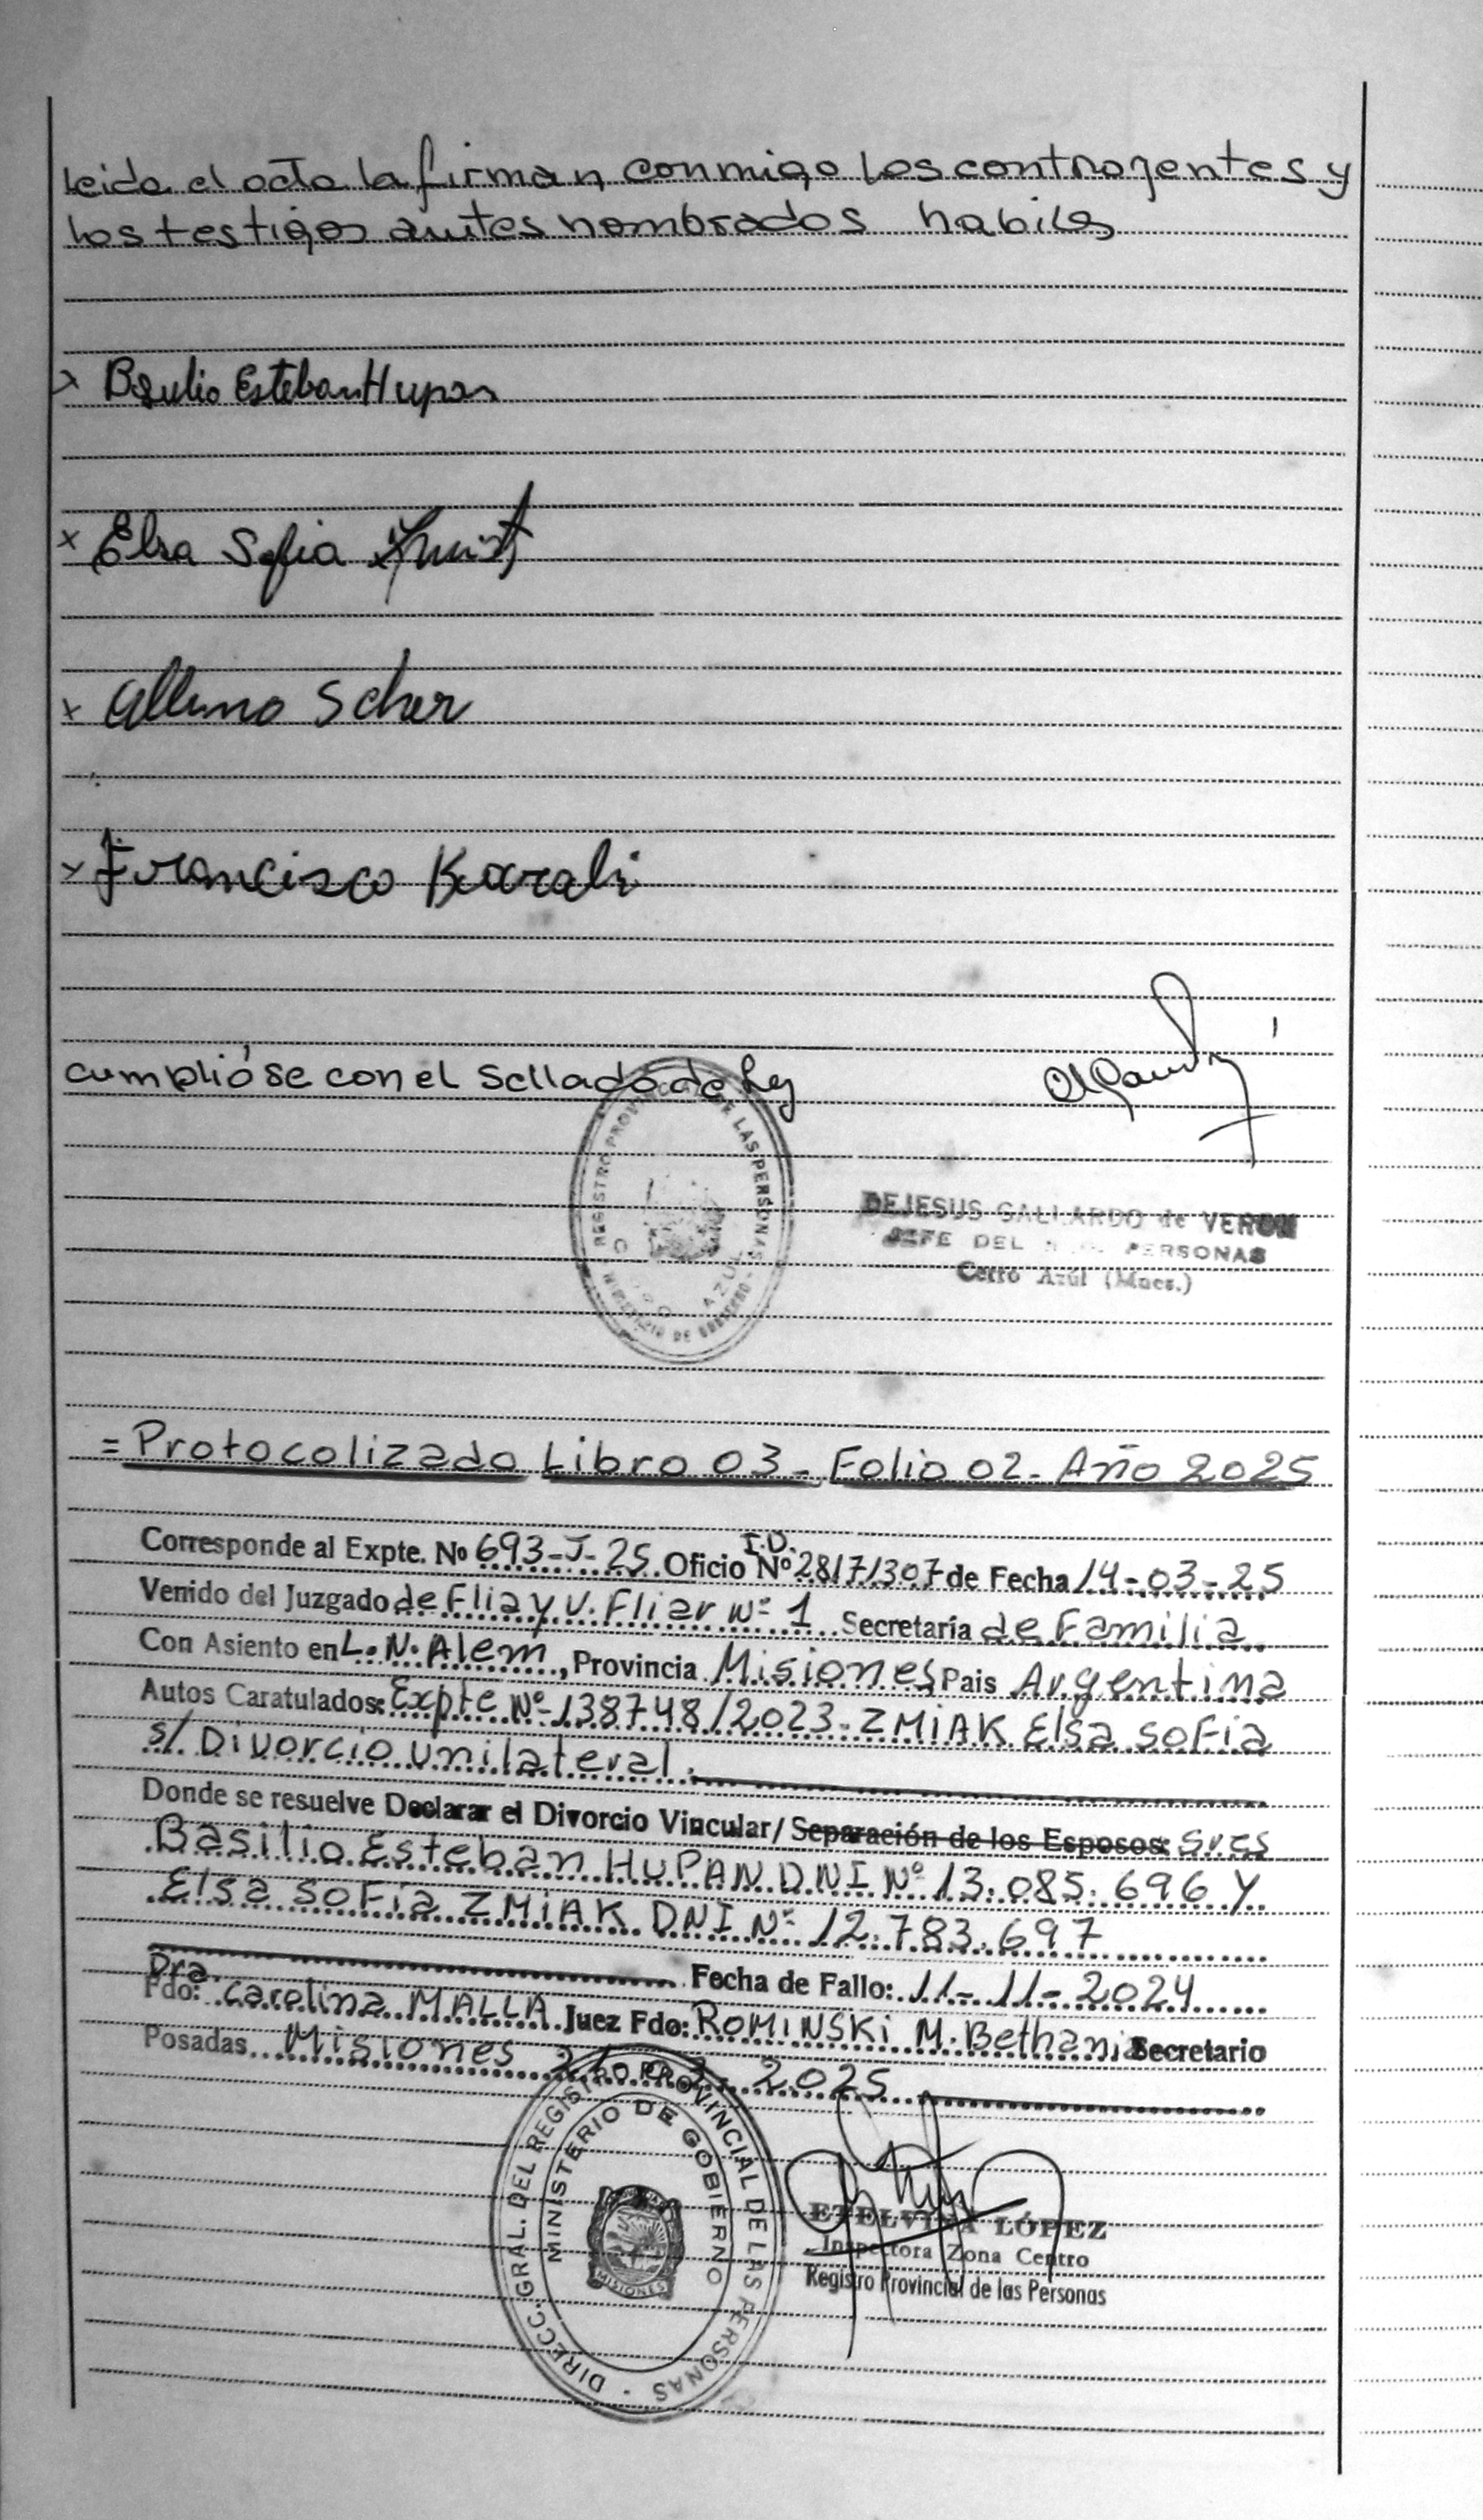 leida el acta la firman conmigo los contrayentes y
los testigos antes nombrados habiles
Basilio Esteban Hupan
x Elsa Sofia
x Scher
x Francisco
cumplióse con el sellado de Ley
REGISTRO PROVINCIAL DE LAS PERSONAS
MINISTERIO DE GOBIERNO
DEJESUS GALLARDO de VERON
JEFE DEL PERSONAS
Cerro Azúl (Mnes.)
= Protocolizado Libro 03 - Folio 02 - Año 2025
I.D.
Corresponde al Expte. No 693-J-25 Oficio Nº 28171307 de Fecha 14-03-25
Venido del Juzgado de Flia y V. Fliar Nº 1 Secretaría de Familia
Con Asiento en L. N. Alem, Provincia Misiones Pais Argentina
Autos Caratulados: Expte Nº 138748/2023 - ZMIAK Elsa Sofia
s/ Divorcio Unilateral.
Donde se resuelve Declarar el Divorcio Vincular/ Separación de los Esposos: Sres
Basilio Esteban HUPAN DNI Nº 13.085.696 y
Elsa Sofia ZMIAK DNI Nº 12.783.697
Fecha de Fallo: 11-11-2024
Dra.
Fdo: Carolina MALLA Juez Fdo: ROMINSKI M. Bethania Secretario
Posadas Misiones 2025
DIRECC. GRAL. DEL REGISTRO PROVINCIAL DE LAS PERSONAS
MINISTERIO DE GOBIERNO
MISIONES
ETELVINA LÓPEZ
Inspectora Zona Centro
Registro Provincial de las Personas